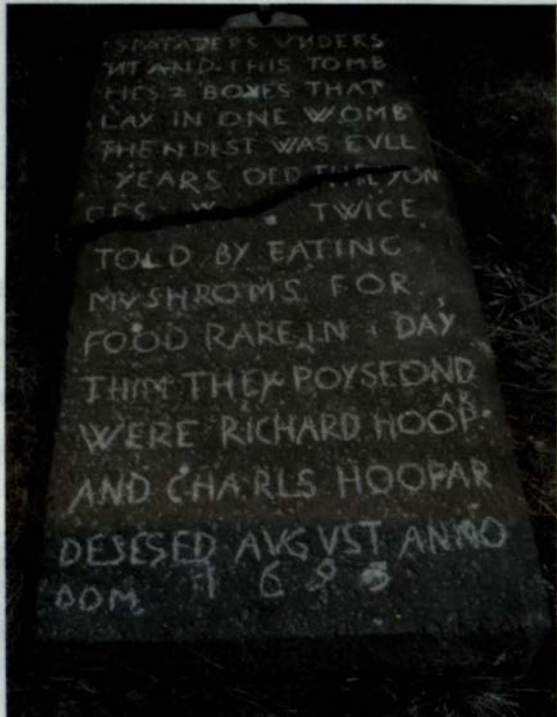 SPATATERS VNDERS
AND THIS TOMB
2 BOYES THAT
LAY IN ONE WOMB
WAS FVLL
YEARS OLD THE YON
GES TWICE
TOLD BY EATING
MVSHROMS FOR
FOOD RARE IN 1 DAY
THIM THEY POYSEOND
WERE RICHARD HOOPAR
AND CHARLS HOOPAR
DESESED AVGVST ANNO
DOM